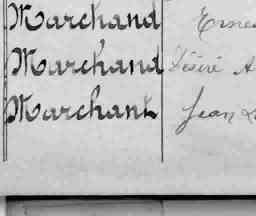 Marchand Ernes
Marchand Désiré A
Marchant Jean L